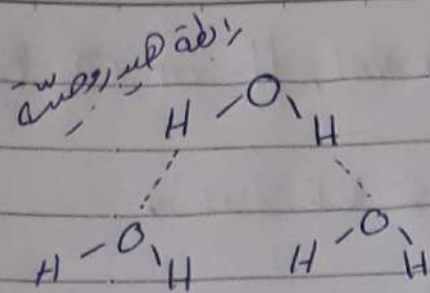 رابطة هيدروجينية
O
H H
O O
H H H H